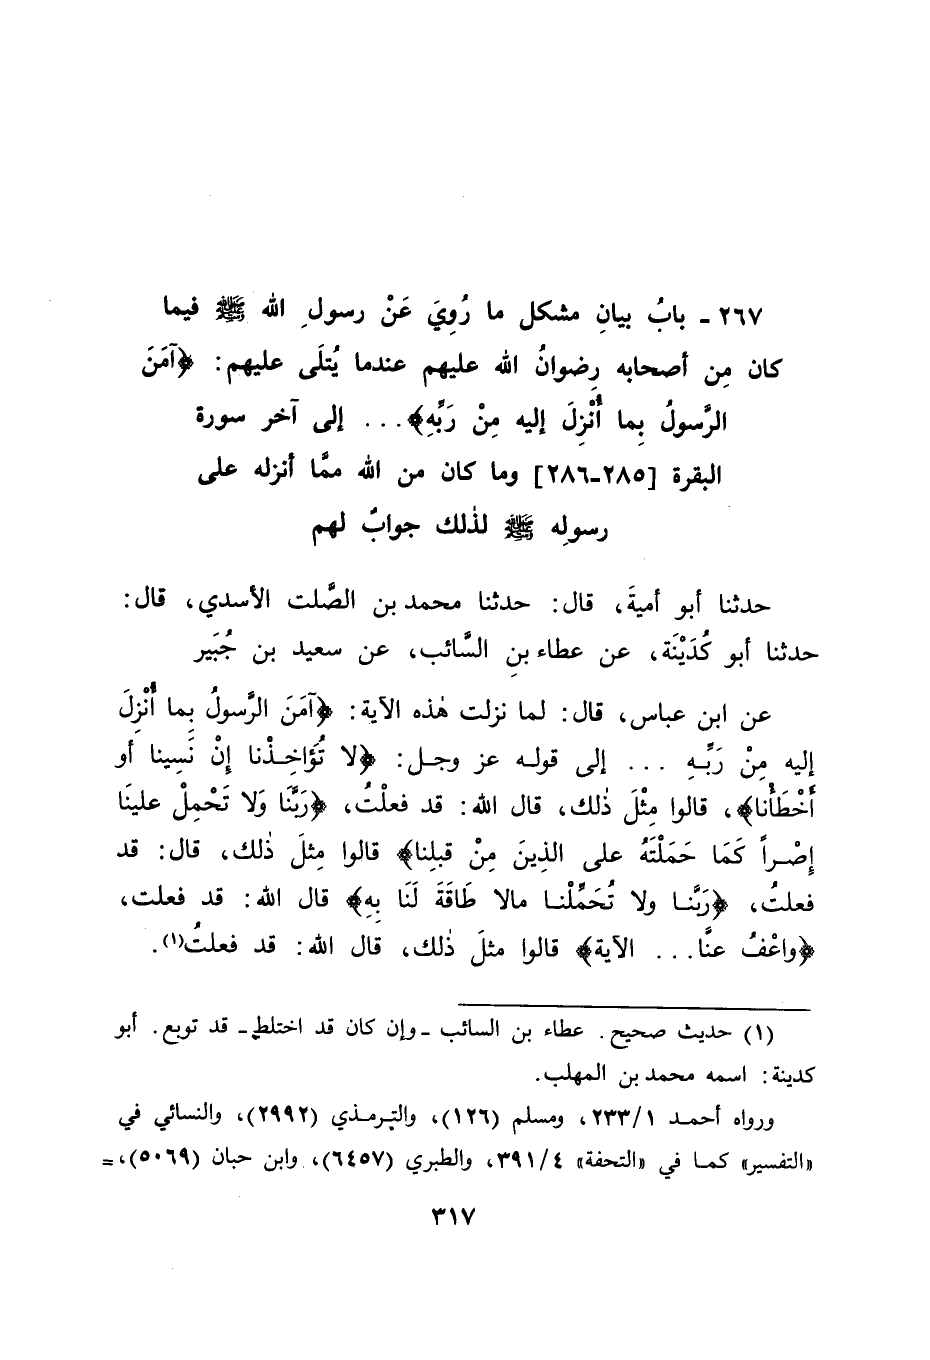 ٢٦٧ ـ بابُ بيانِ مشكل ما رُوِيَ عَنْ رسولِ الله ﷺ فيما
كان مِن أصحابه رِضوانُ الله عليهم عندما يُتلَى عليهم: ﴿آمَنَ
الرَّسولُ بِما أُنْزِلَ إليه مِنْ رَبِّهِ﴾... إلى آخر سورة
البقرة [٢٨٥ـ٢٨٦] وما كان من الله ممَّا أنزله على
رسولِه ﷺ لذٰلك جوابٌ لهم
حدثنا أبو أميةَ، قال: حدثنا محمد بن الصَّلت الأسدي، قال:
حدثنا أبو كُدَيْنَة، عن عطاء بنِ السَّائب، عن سعيد بن جُبَير
عن ابن عباس، قال: لما نزلت هٰذه الآية: ﴿آمَنَ الرَّسولُ بِما أُنْزِلَ
إليه مِنْ رَبِّهِ ... إلى قوله عز وجل: ﴿لا تُؤَاخِذْنا إِنْ نَسِينا أو
أَخْطَأْنا﴾، قالوا مِثْلَ ذٰلك، قال الله: قد فعلْتُ، ﴿رَبَّنَا وَلا تَحْمِلْ علينَا
إِصْراً كَمَا حَمَلْتَهُ على الذِينَ مِنْ قبلِنا﴾ قالوا مِثلَ ذٰلك، قال: قد
فعلتُ، ﴿رَبَّنا ولا تُحَمِّلْنا مالا طَاقَةَ لَنَا بِهِ﴾ قال الله: قد فعلت،
﴿واعْفُ عنَّا... الآية﴾ قالوا مثلَ ذٰلك، قال الله: قد فعلتُ(١).
(١) حديث صحيح. عطاء بن السائب ـ وإن كان قد اختلط ـ قد توبع. أبو
كدينة: اسمه محمد بن المهلب.
ورواه أحمد ٢٣٣/١، ومسلم (١٢٦)، والترمذي (٢٩٩٢)، والنسائي في
«التفسير» كما في «التحفة» ٣٩١/٤، والطبري (٦٤٥٧)، وابن حبان (٥٠٦٩)، =
٣١٧